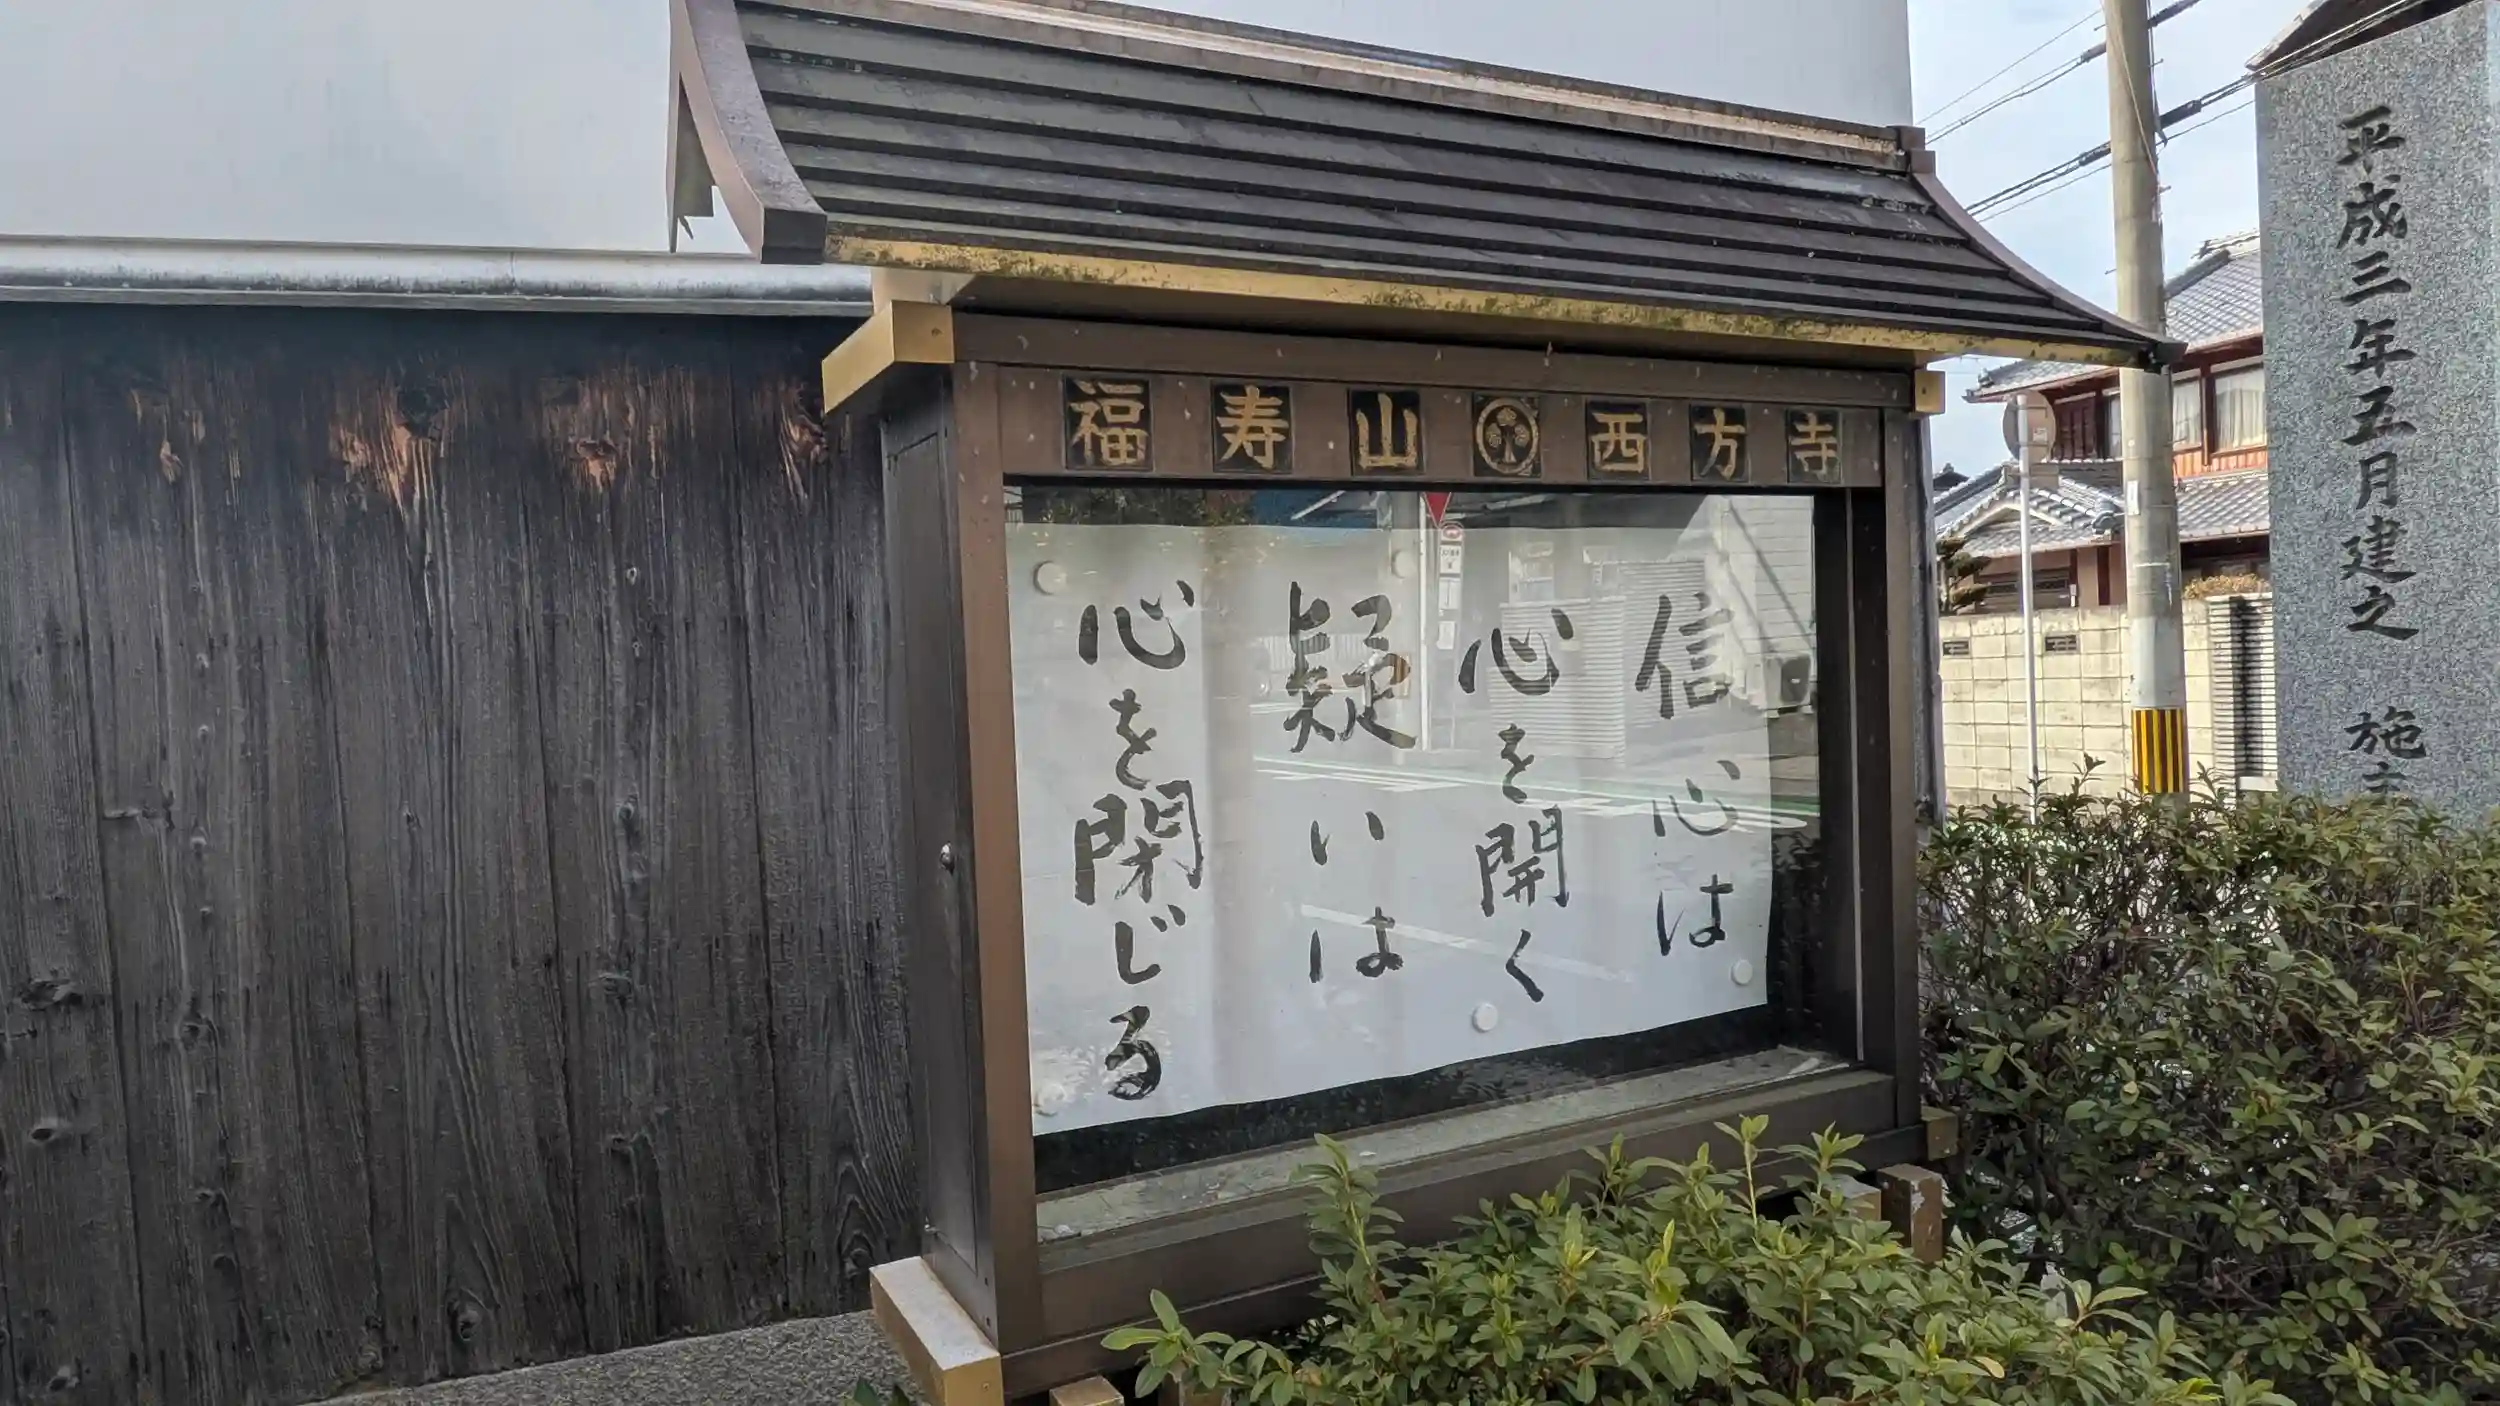 福寿山 西方寺
信心は
心を開く
疑いは
心を閉じる
平成三年五月建之 施